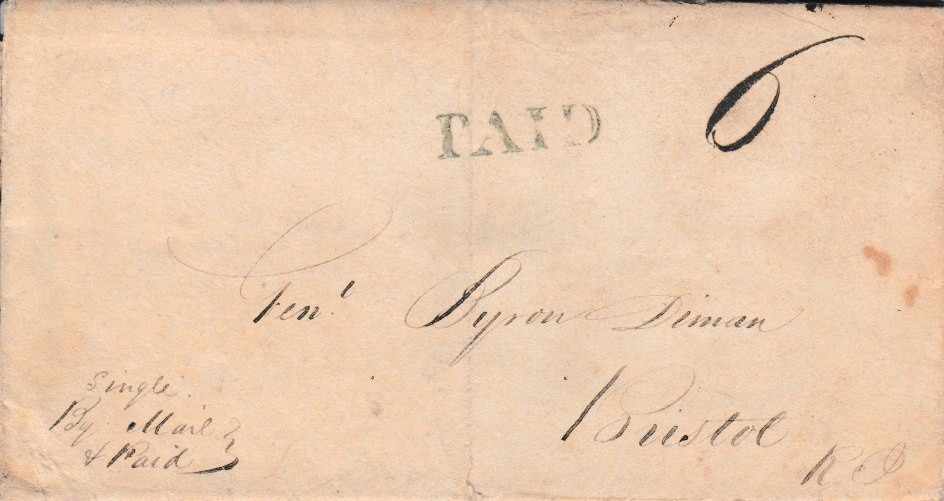 PAID 6
Genl. Byron Diman
Bristol
R I
Single.
By Mail
& Paid